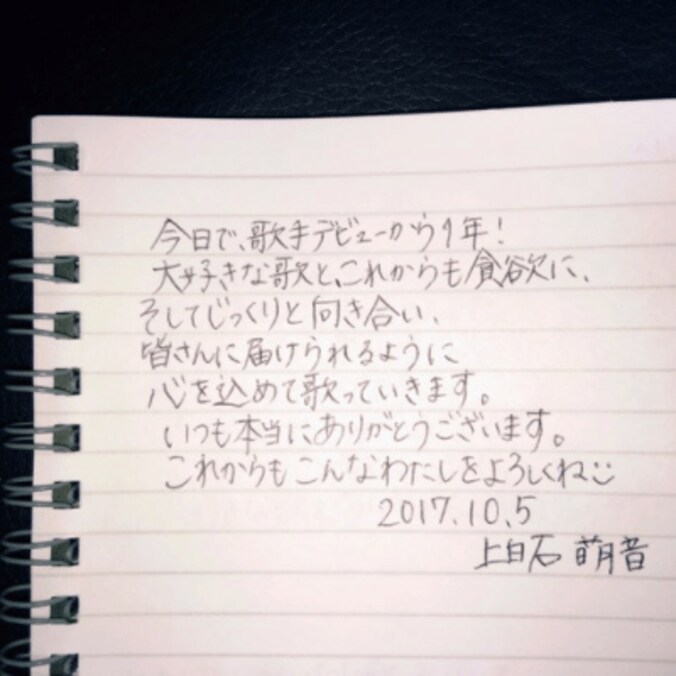 今日で、歌手デビューから1年!
大好きな歌と、これからも貪欲に、
そしてじっくりと向き合い、
皆さんに届けられるように
心を込めて歌っていきます。
いつも本当にありがとうございます。
これからもこんなわたしをよろしくね
2017.10.5
上白石萌音